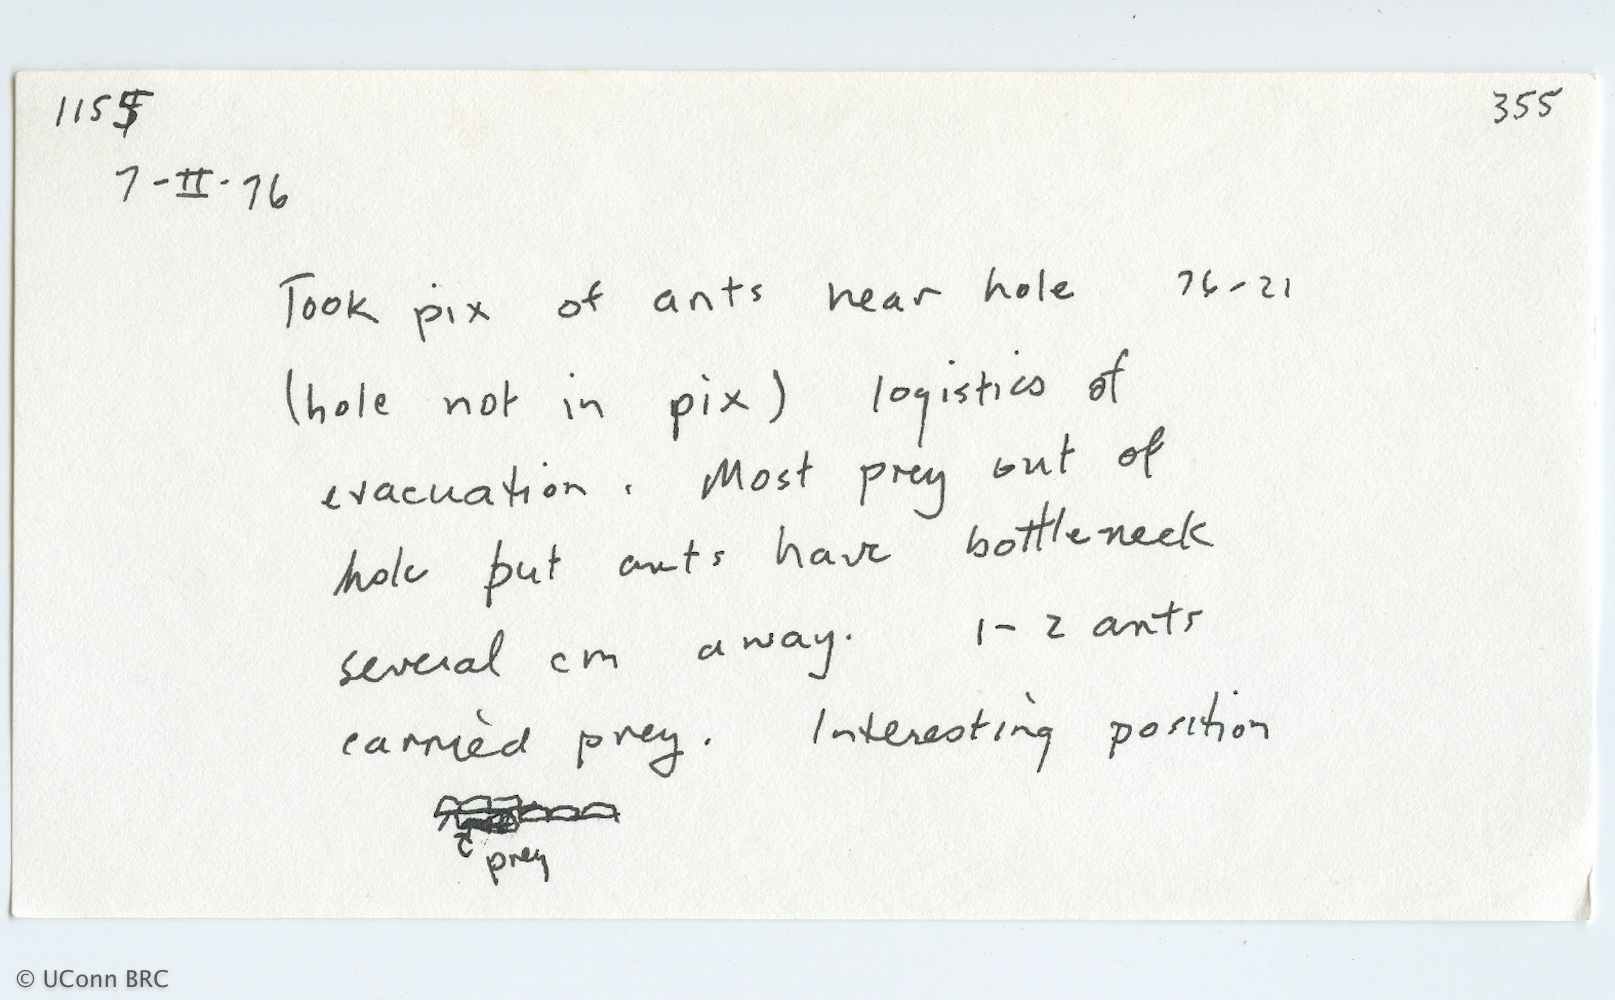 1155 355
7-II-76
Took pix of ants near hole 76-21
(hole not in pix) logistics of
evacuation. Most prey out of
hole but ants have bottleneck
several cm away. 1-2 ants
carried prey. Interesting position
prey
© UConn BRC